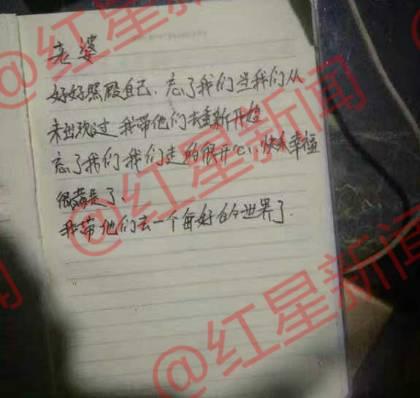 老婆
好好照顾自己、忘了我们当我们从
未出现过 我带他们去重新开始
忘了我们 我们走的很开心,快乐幸福
我带他们去一个每好的世界了.
@红星新闻
@红星新闻
@红星新闻